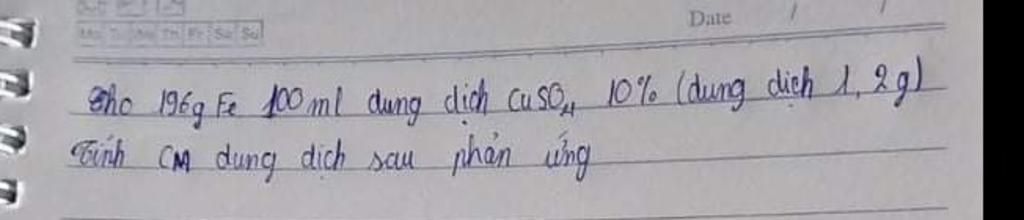 Date / /
Mo Tu We Th Fr Sa Su
Cho 196g Fe 100ml dung dịch CuSO4 10% (dung dịch 1,2g)
Tính CM dung dịch sau phản ứng